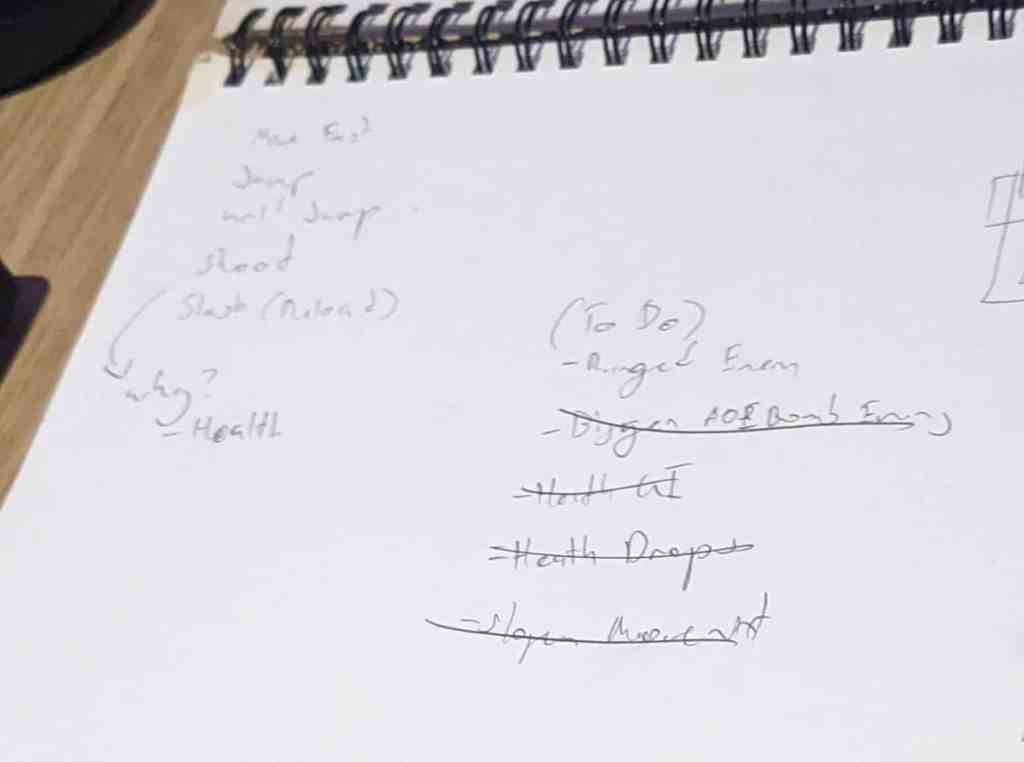 Jump
wall Jump
shoot
Slash (Reload)
why?
- Health
(To Do)
- Ranged Enem
- Bigger AOE Bomb Enemy
- Health UI
- Health Drops
- Movement